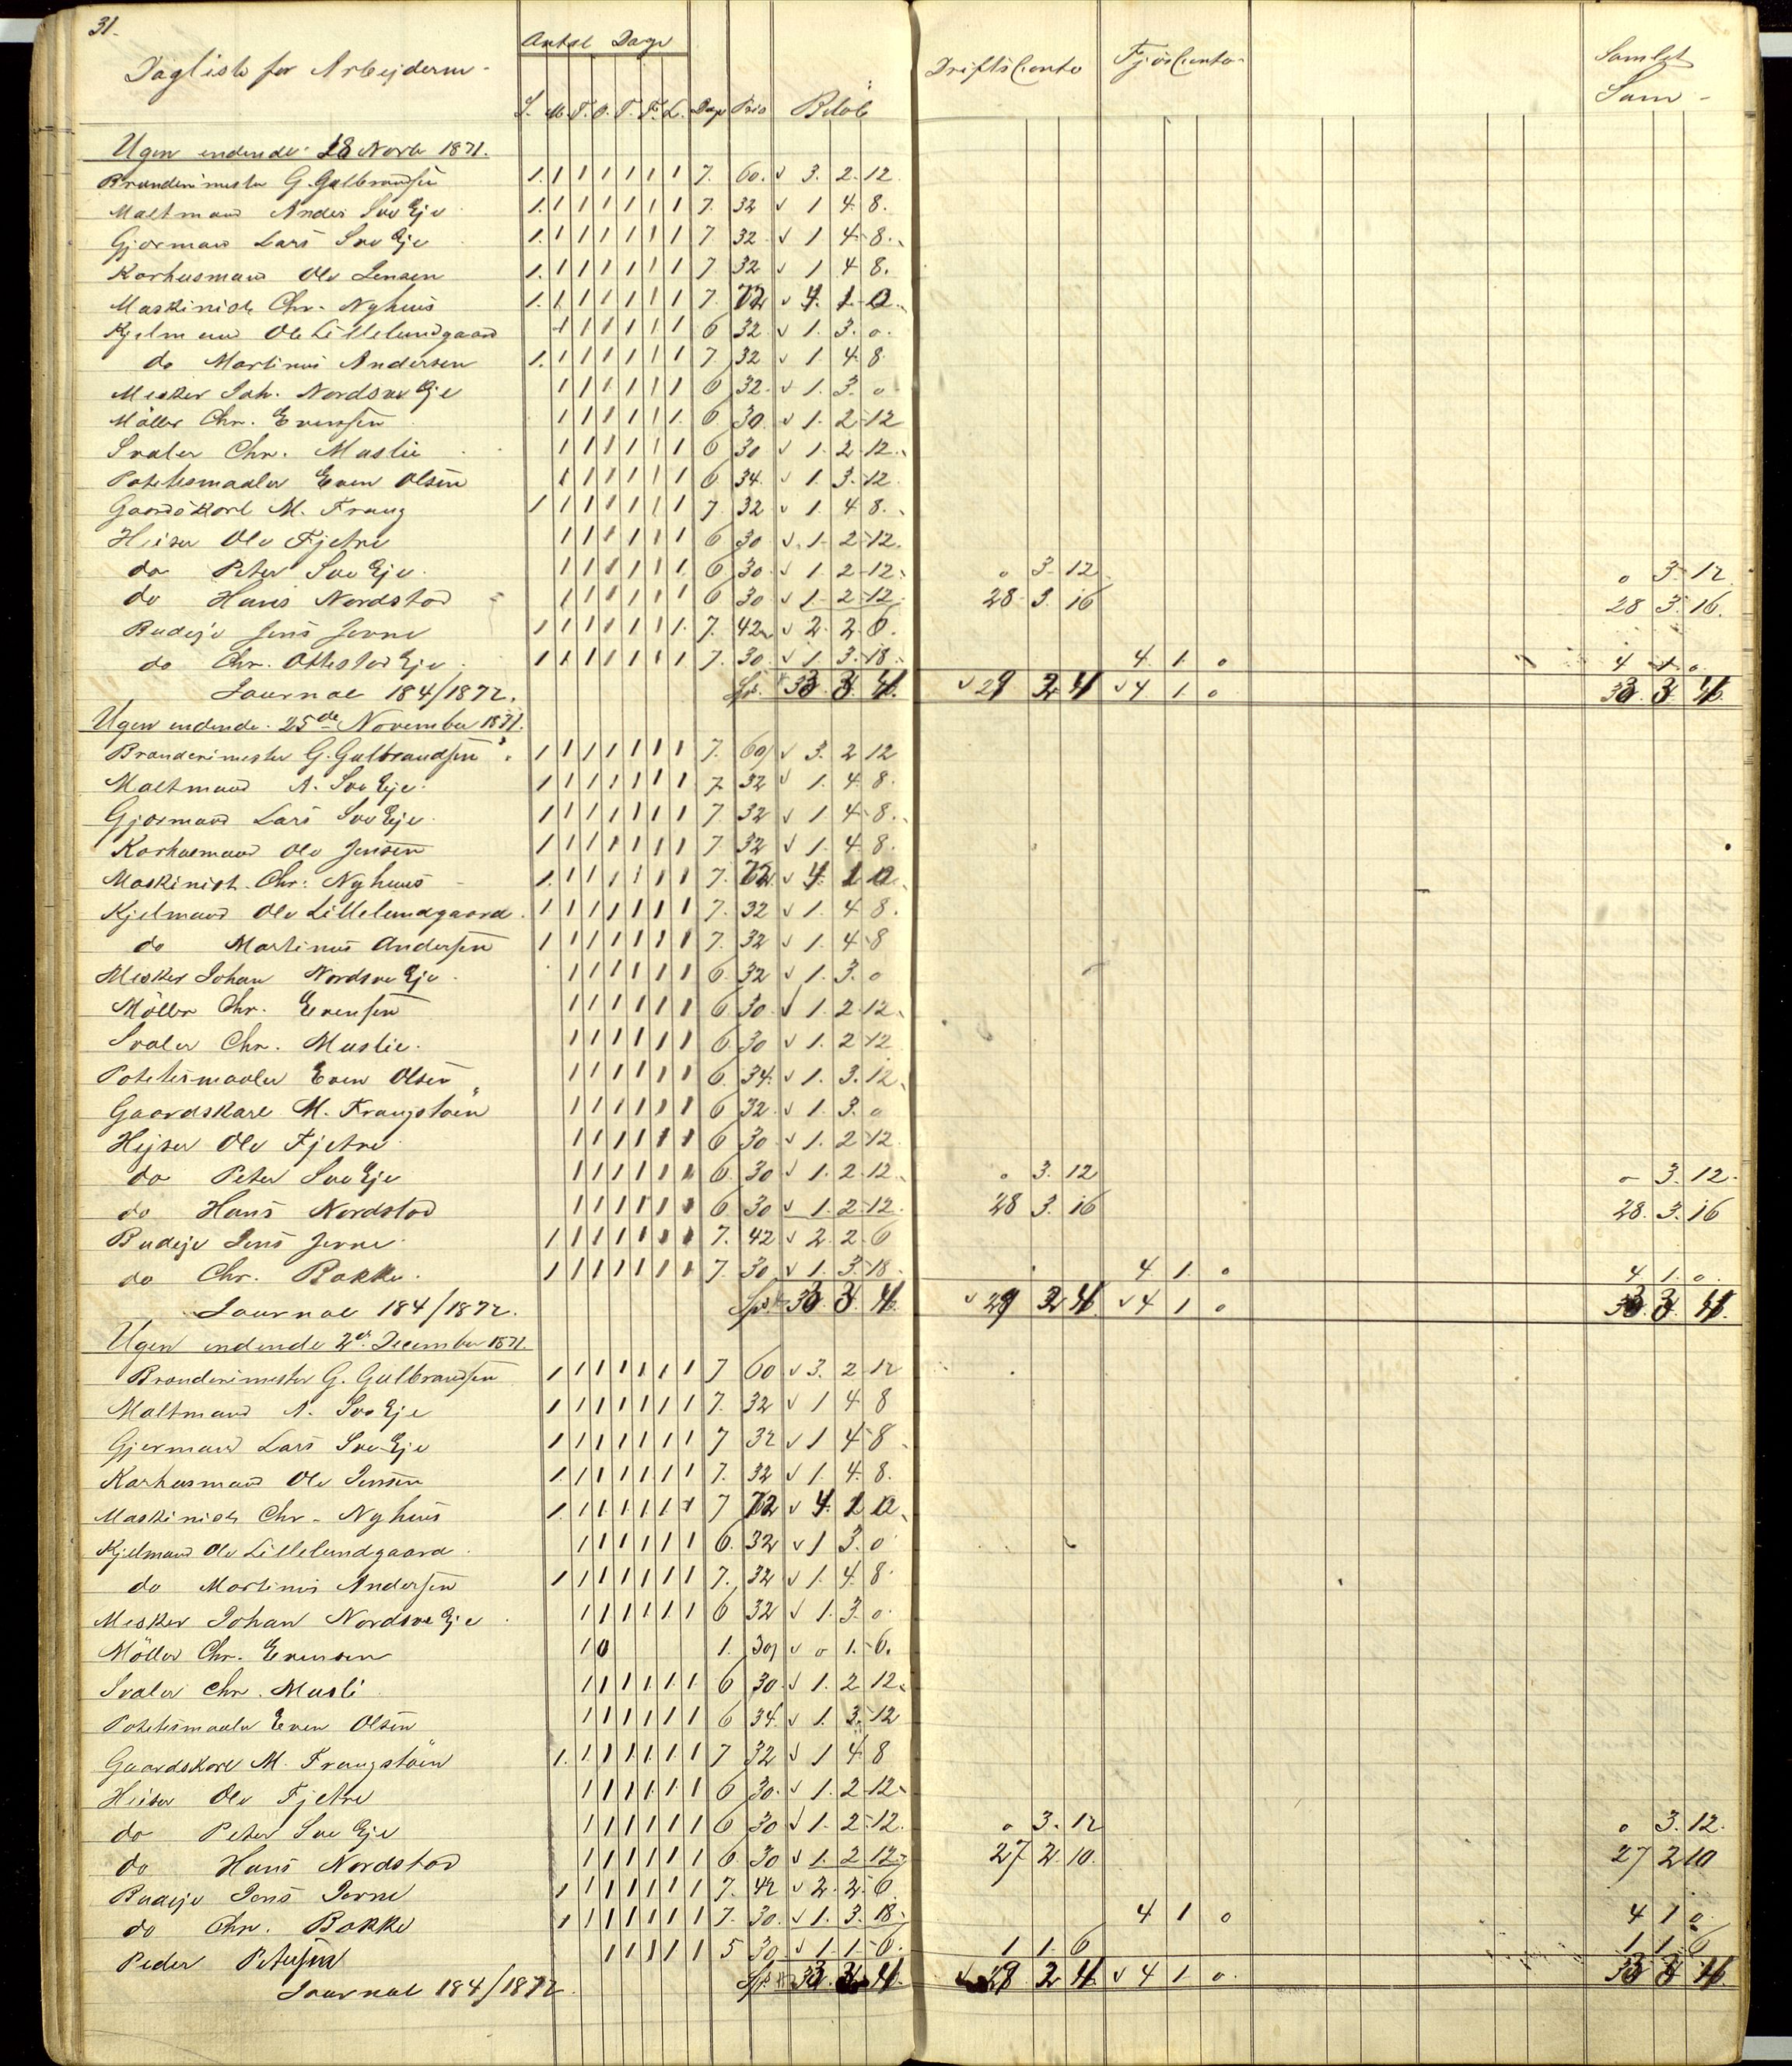 31.
Daglist for Arbejderne
Antal Dage
Drifts Conto Fjös Conto
Samlet Sum
S. M. T. O. T. F. L. Dage Pris Beløb
Ugen endende 18 Novb 1871.
Brænderimester G. Gulbrandsen 1. 1 1 1 1 1 1 7. 60. 3. 2. 12
Maltmand Anders Sve Eje 1. 1 1 1 1 1 1 7. 32 1 4 8.
Gjærmand Lars Sve Eje 1. 1 1 1 1 1 1 7 32 1 4 8.
Karhusmand Ole Jensen 1. 1 1 1 1 1 1 7 32 1 4 8.
Maskinist Chr. Nyhuus 1. 1 1 1 1 1 1 7. 72 4. 1. 0
Kjelmand Ole Lillelundgaard 1 1 1 1 1 1 6 32 1. 3. 0.
do Martinus Andersen 1. 1 1 1 1 1 1 7. 32 1 4 8
Mesker Joh. Nordsve Eje 1 1 1 1 1 1 6 32. 1. 3. 0
Möller Chr. Evensen 1 1 1 1 1 1. 6. 30. 1. 2 12
Svaler Chr. Muslie 1 1 1 1 1 1 6 30 1. 2 12.
Potetesmaaler Even Olsen 1 1 1 1 1 1 6 34. 1. 3. 12.
Gaardskarl M. Frang 1 1 1 1 1 1 1 7. 32 1. 4 8.
Heiser Ole Fjetre 1 1 1 1 1 1 6 30 1. 2 12.
do Peter Sve Eje 1 1 1 1 1 1 6 30. 1. 2 12. 0 3 12 0 3. 12
do Hans Nordstad 1 1 1 1 1 1 6 30 1 2 12. 28. 3. 16 28 3 16.
Budeje Jens Jevne 1 1 1 1 1 1 1. 7. 42 2. 2. 6.
do Chr. Ottestad Eje 1 1 1 1 1 1 1 7. 30. 1 3. 18 4. 1. 0 4 1 0.
Journal 184/1872. Sp. 33. 3. 4. 29 2 4 4 1 0 33. 3 4.
Ugen endende 25de November 1871.
Brænderimester G. Gulbrandsen 1 1 1 1 1 1 1 7. 60 3. 2 12
Maltmand A. Sve Eje. 1 1 1 1 1 1 1 7. 32 1. 4. 8.
Gjærmand Lars Sve Eje. 1 1 1 1 1 1 1 7. 32 1 4 8.
Karhusmand Ole Jensen 1 1 1 1 1 1 1 7. 32 1 4. 8.
Maskinist Chr: Nyhuus 1. 1 1 1 1 1 1 7. 72. 4. 1 0
Kjelmand Ole Lillelundgaard. 1 1 1 1 1 1 1 7. 32 1. 4 8.
do Martinus Andersen 1 1 1 1 1 1 1 7. 32 1. 4 8
Mesker Johan Nordsve Eje 1 1 1 1 1 1 6. 32 1. 3. 0
Möller Chr. Evensen 1 1 1 1 1 1 6. 30. 1. 2 12.
Svaler Chr. Muslie. 1 1 1 1 1 1 6. 30 1. 2 12
Potetesmaaler Even Olsen 1 1 1 1 1 1 6. 34. 1. 3. 12
Gaardskarl M. Frangstøen 1 1 1 1 1 1 6 32. 1. 3. 0
Hejser Ole Fjetre 1 1 1 1 1 1 6 30. 1. 2 12.
do Peter Sve Eje 1 1 1 1 1 1 6. 30 1. 2. 12. 0 3. 12 0 3. 12.
do Hans Nordstad 1 1 1 1 1 1 6 30 1. 2. 12. 28 3. 16 28. 3. 16
Budeje Jens Jevne 1 1 1 1 1 1 1 7. 42 2. 2. 6
do Chr. Bakke. 1 1 1 1 1 1 1 7. 30. 1. 3. 18. 4. 1. 0 4 1. 0.
Journal 184/1872. Sp. 33. 3. 4. 29 2 4 4 1 0 33. 3. 4.
Ugen endende 2den December 1871.
Brænderimester G. Gulbrandsen 1 1 1 1 1 1 1 7 60 3. 2 12
Maltmand A. Sve Eje 1 1 1 1 1 1 1 7. 32 1 4 8
Gjærmand Lars Sve Eje 1 1 1 1 1 1 1 7 32 1 4 8
Karhusmand Ole Jensen 1 1 1 1 1 1 1 7. 32 1. 4. 8.
Maskinist Chr. Nyhuus 1. 1 1 1 1 1 1 7 72 4. 1 0
Kjelmand Ole Lillelundgaard. 1 1 1 1 1 1 6. 32 1 3. 0
do Martinus Andersen 1 1 1 1 1 1 1 7. 32 1. 4. 8
Mesker Johan Nordsve Eje 1 1 1 1 1 1 6 32 1. 3. 0
Möller Chr. Evensen 1 0 1. 30 0 1. 6.
Svaler Chr. Musli 1 1 1 1 1 1 6 30. 1. 2 12.
Potetesmaaler Even Olsen 1 1 1 1 1 1 6 34. 1. 3. 12
Gaardskarl M. Frangstøen 1. 1 1 1 1 1 1 7 32 1 4 8
Heiser Ole Fjetre 1 1 1 1 1 1 6 30. 1. 2 12.
do Peter Sve Eje 1 1 1 1 1 1 6 30 1. 2 12. 0 3. 12 0 3. 12.
do Hans Nordstad 1 1 1 1 1 1 6. 30 1. 2 12. 27 2. 10. 27 2 10
Budeje Jens Jevne 1 1 1 1 1 1 1 7. 42 2. 2. 6.
do Chr. Bakke 1 1 1 1 1 1 1 7. 30. 1. 3. 18. 4 1 0 4 1 0
Peder Petersen 1 1 1 1 1 5 30. 1. 1. 6. 1 1. 6 1 1 6
Journal 184/1872. Sp. 33. 3 4. 29 2 4. 4 1 0. 33 3 4